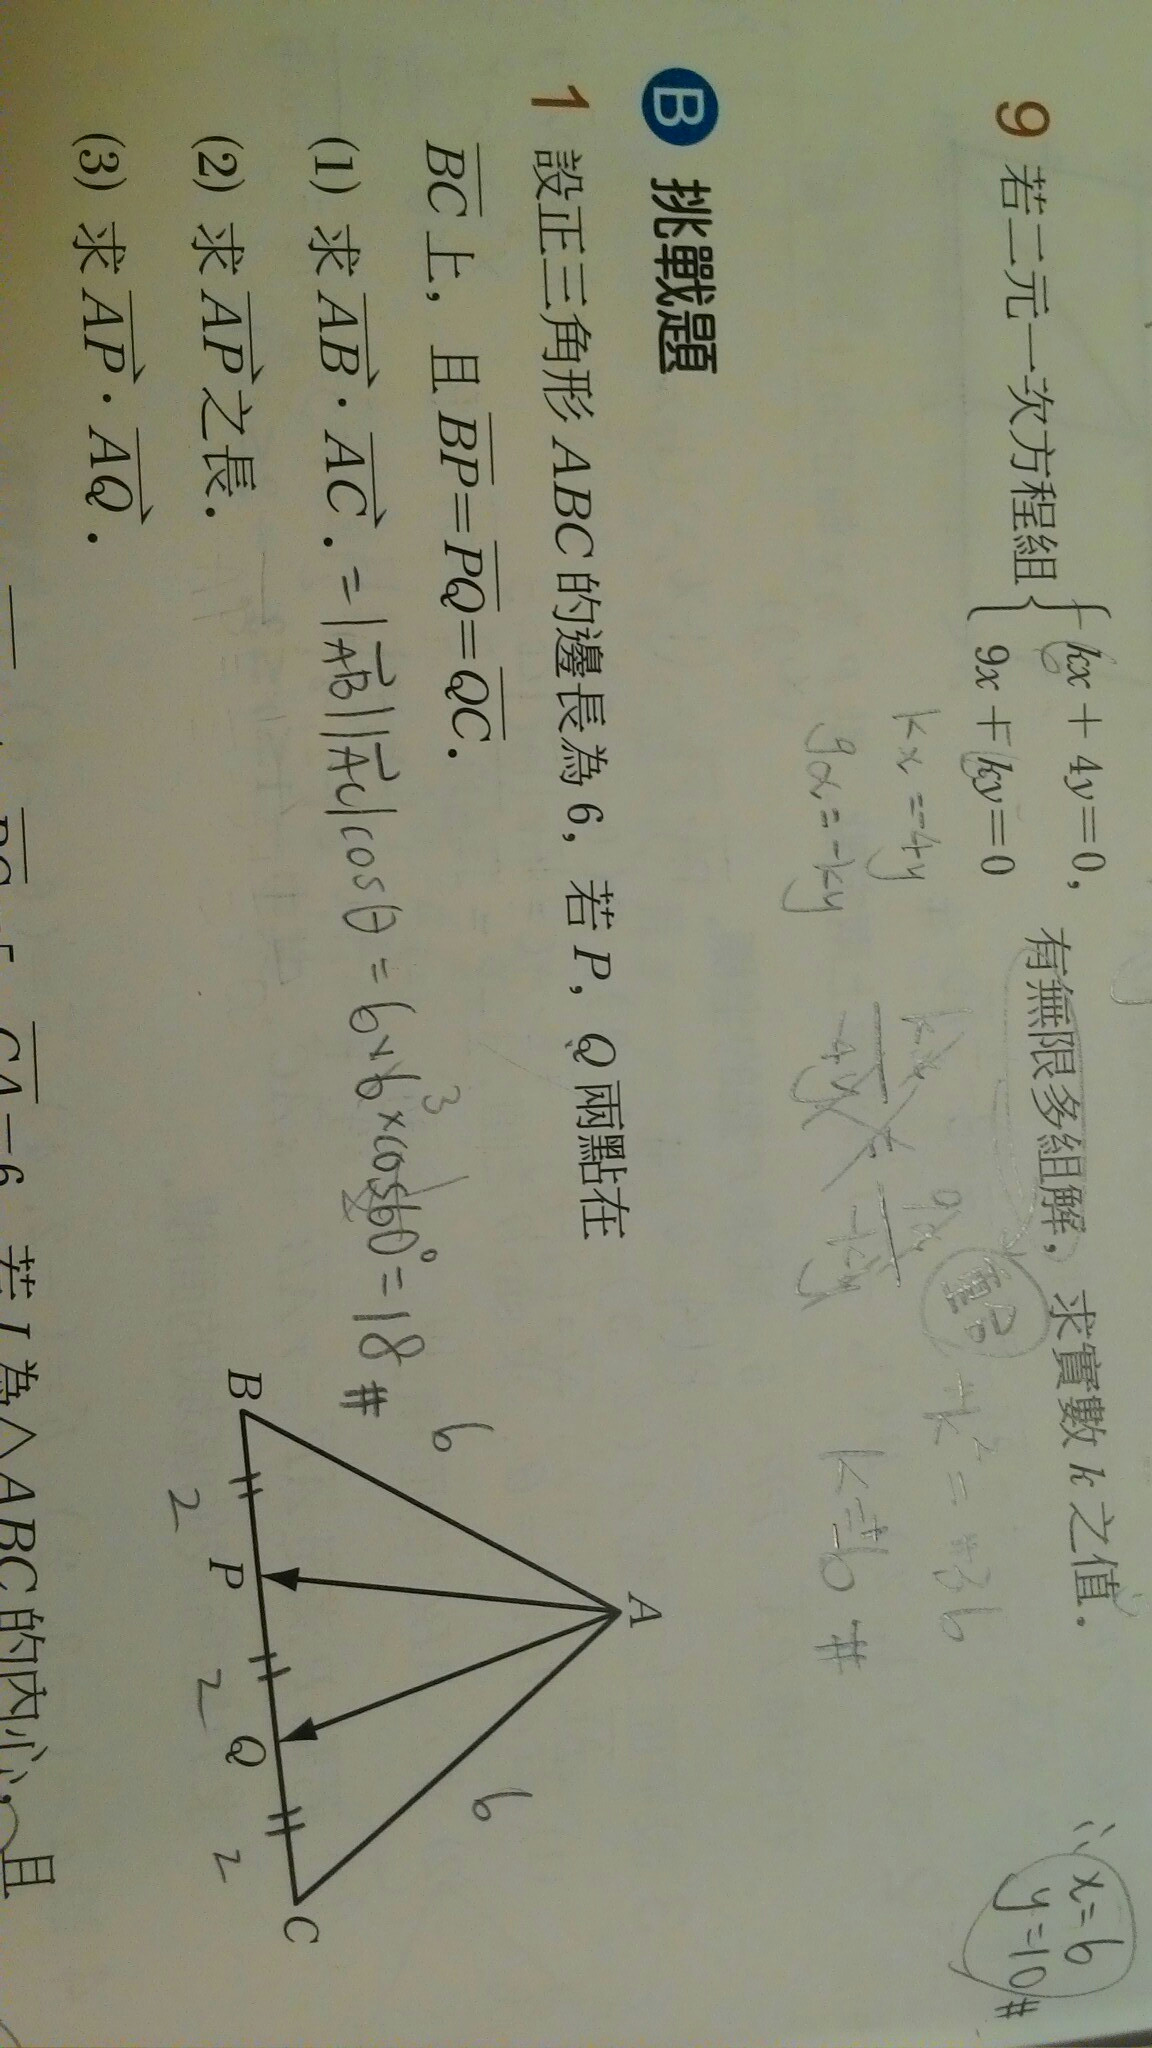 9 若二元一次方程組 { kx + 4y = 0, 9x + ky = 0 有無限多組解,求實數 k 之值.
∴ x=6
y=10 #
kx=-4y
9x=-ky
重合
k=±6 #
B 挑戰題
1 設正三角形 ABC 的邊長為 6,若 P,Q 兩點在
BC 上,且 BP=PQ=QC.
(1) 求 AB · AC . = |AB||AC|cosθ = 6×6×cos60° = 18 #
3
1
2
(2) 求 AP 之長.
(3) 求 AP · AQ .
A
6
6
B
P
Q
C
2
2
2
CA=6 若 I 為△ABC 的內心,且